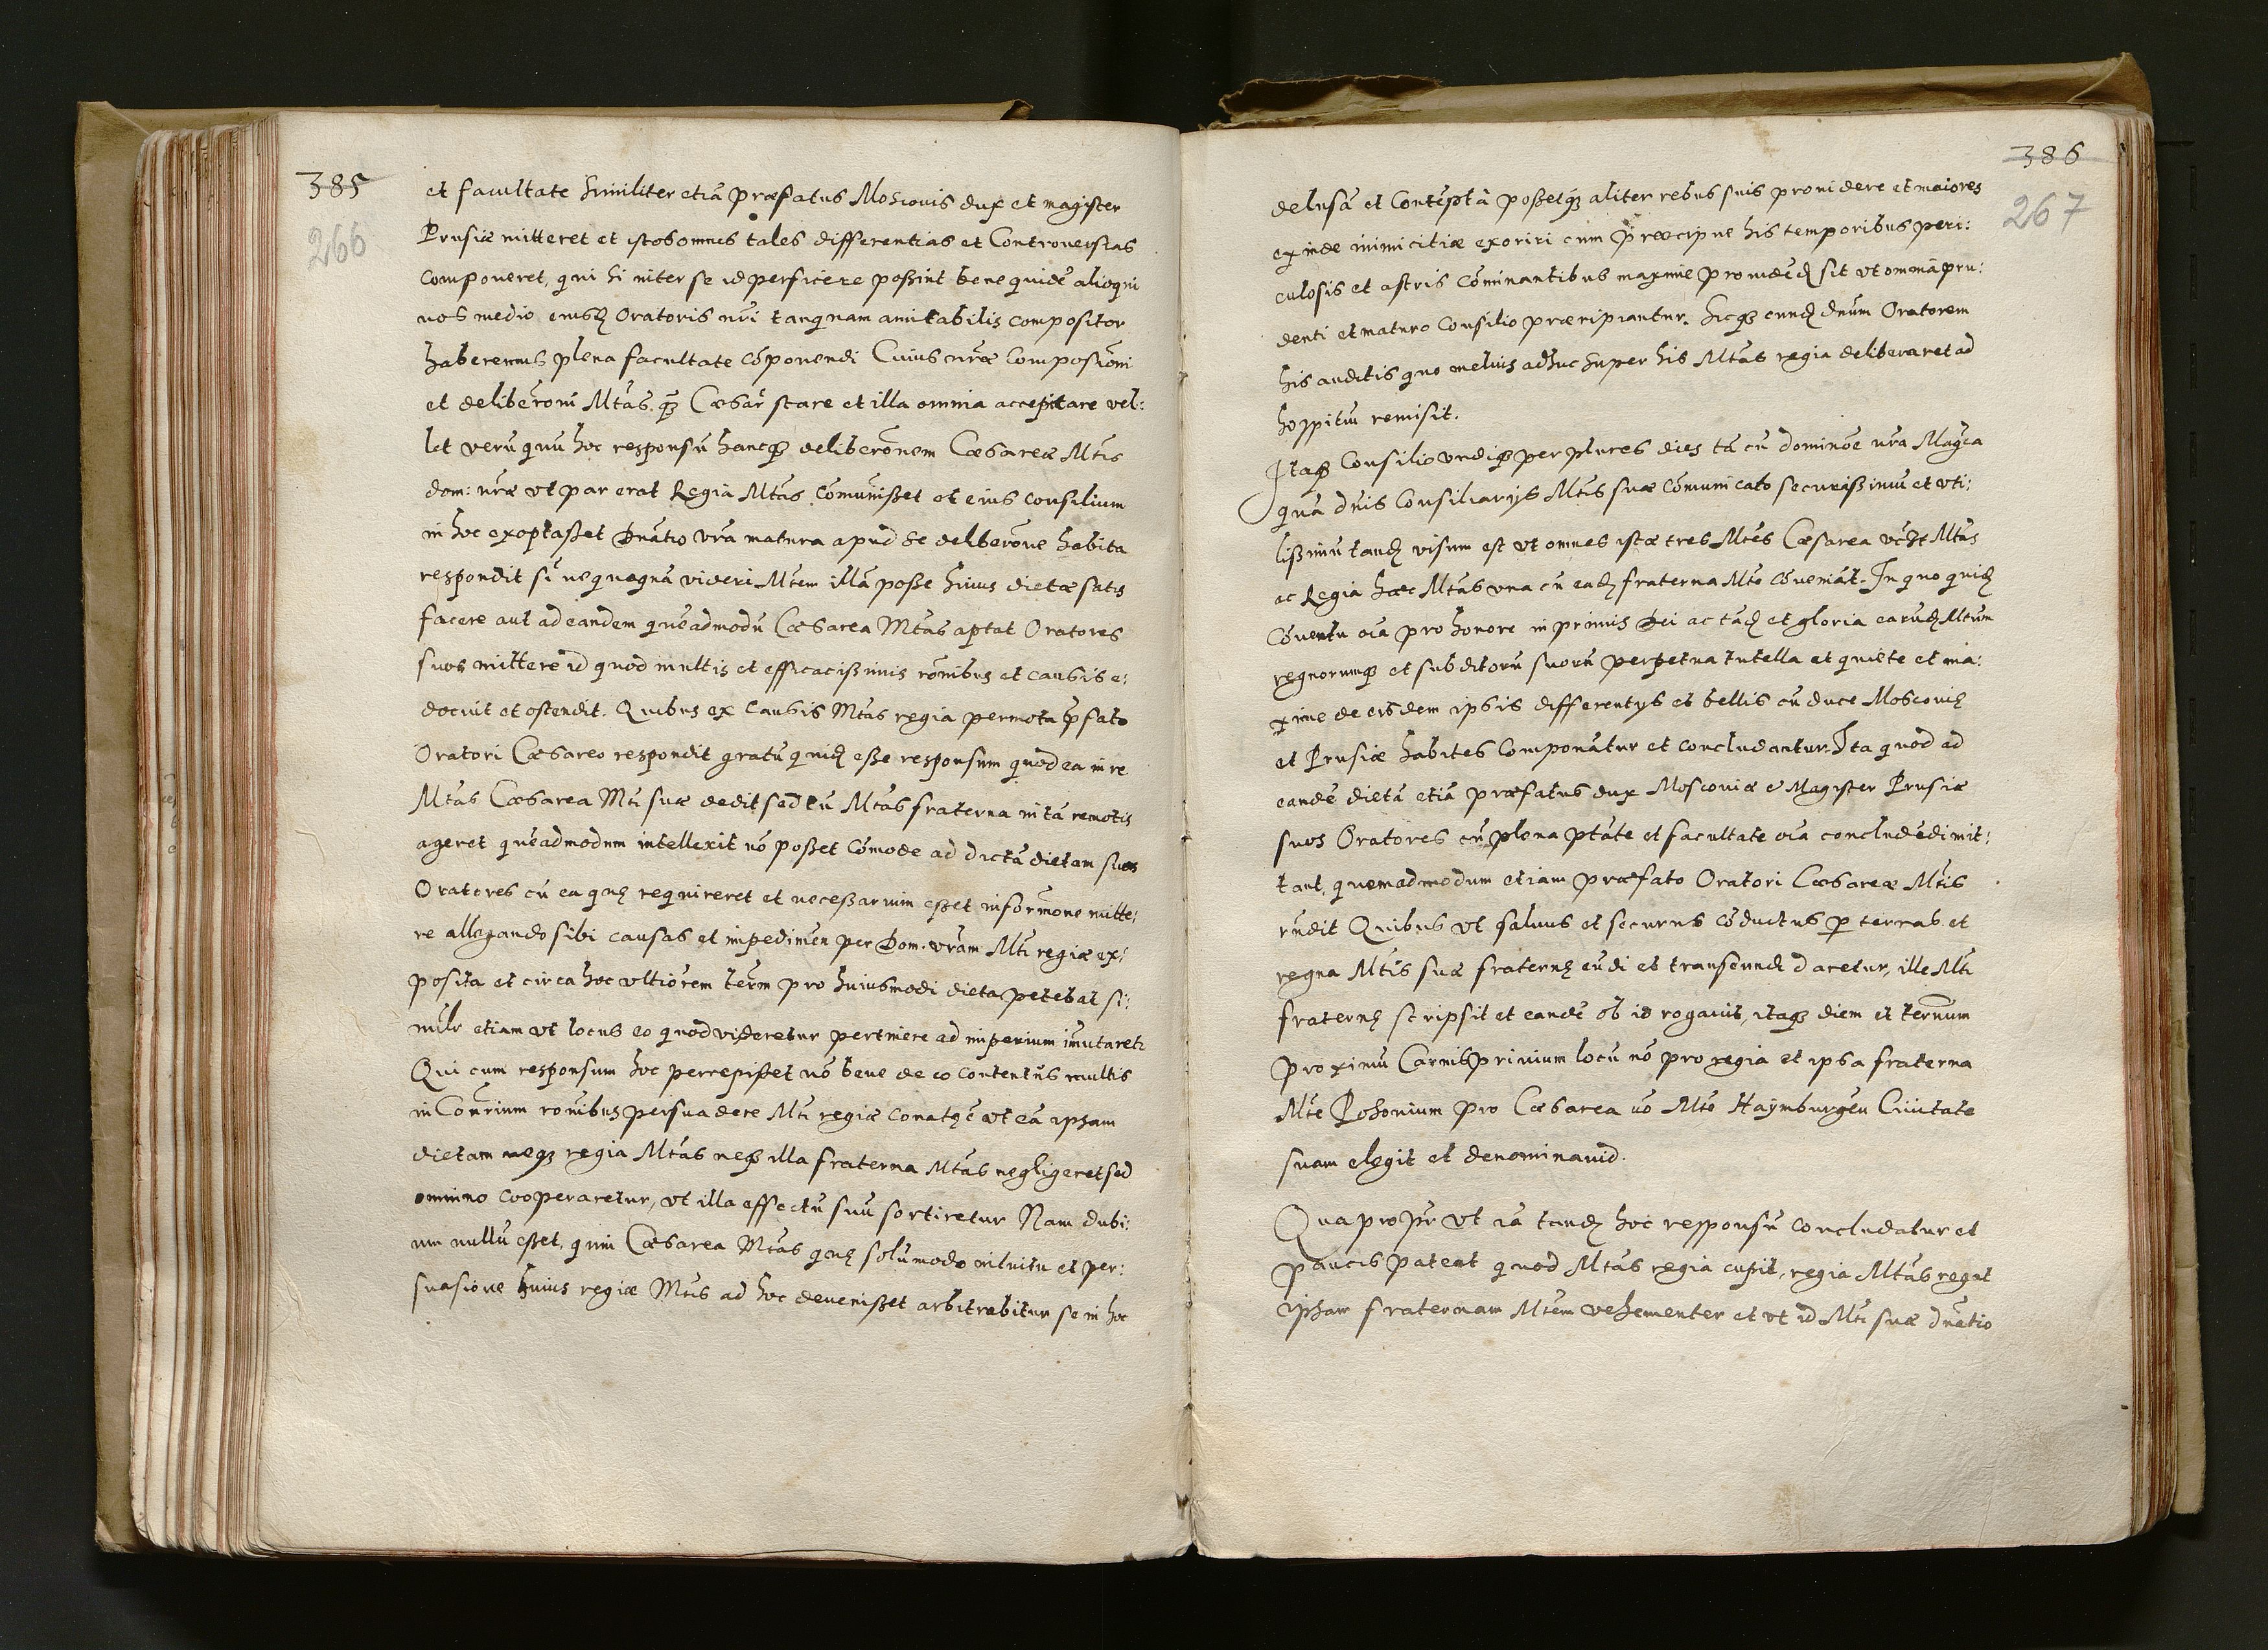 385
266
et facultate similiter etiā præfatus Moscouis dux et magister
Prusiæ mitteret et istos omnes tales differentias et Controuersias
componeret, qui si inter se id perficere poßint bene quidē alioqui
nos medio eiusdꝫ Oratoris nr̄i tanquam amicabilis compositor
haberemus plena facultate cōponendi Cuius nr̄æ composicōni
et deliberōni Mtas. qꝫ Cæsār stare et illa omnia acceptare vel:
let verū quū hoc responsū hancqꝫ deliberōnem Cæsareæ Mtis
dom: vr̄æ vt par erat Regia Mtas cōmunißet et eius consilium
in hoc exoptaßet Dnātio vr̄a matura apud se deliberōne habita
respondit si nequaquā videri Mtem illā poße huius dietæ satis
facere aut ad eandem quēadmodū Cæsarea Mtas aptat Oratores
suos mittere id quod multis et efficacißimis rōnibus et causis e:
docuit et ostendit. Quibus ex Causis Mtas regia permota p̄fato
Oratori Cæsareo respondit gratū quidꝫ eße responsum quod ea in re
Mtas Cæsarea Mti suæ dedit sed cū Mtas fraterna in tā remotis
ageret quēadmodum intellexit nō poßet cōmode ad dictā dietam suos
Oratores cū ea quę requireret et neceßarium eßet informōne mitte:
re allegando sibi causas et impedimen per Dom. vrām Mti regiæ ex:
posita et circa hoc vltiōrem term̄ pro huiusmodi dieta petebat si:
mulr etiam vt locus eo quod videretur pertinere ad imperium im̄utaretr
Qui cum responsum hoc percepißet nō bene de eo contentus multis
in Con̄rium rōnibus persuadere Mti regiæ conatꝰ ē vt eā ipsam
dietam neqꝫ regia Mtas neqꝫ illa fraterna Mtas negligeret sed
omnino cooperaretur, vt illa effectū suū sortiretur Nam dubi:
um nullū eßet, quin Cæsarea Mtas quę solūmodo intuitu et per:
suasione huius regiæ Mtis ad hoc deuenißet arbitrabitur se in hoc
386
267
delusā et Contēptā poßetqꝫ aliter rebus suis prouidere et maiores
exinde inimicitiæ exoriri cum præcipue his temporibus peri:
culosis et astris cōminantibus maxime prouidēdꝫ sit vt omnia pru:
denti et maturo Consilio præripiantur. Sicqꝫ eundꝫ dnūm Oratorem
his auditis quo melius adhuc super his Mtas regia deliberaret ad
hospitiū remisit.
Itaqꝫ Consilio vndiqꝫ per plures dies tā cū dominōe vr̄a Mag̃ca
quā dn̄is Consiliarijs Mtis suæ cōmunicato securißimū et vti:
lißimū tandꝫ visum est vt omnes istæ tres Mtes Cæsarea vr̄ꝫ Mtas
ac Regia hæc Mtas vna cū eadꝫ fraterna Mte cōueniāt. In quo quidꝫ
Cōuentu oīa pro honore in primis Dei ac tādꝫ et gloria earūdꝫ Mtum
regnorumqꝫ et subditorū suorū perpetua tutella et quiete et ma:
xime de eisdem ipsis differentijs et bellis cū duce Moscouię
et Prusiæ habites componātur et concludantur. Ita quod ad
eandē dietā etiā præfatus dux Moscouiæ & Magister Prusiæ
suos Oratores cū plena ptāte et facultate oīa concludēdi mit:
tant, quemadmodum etiam præfato Oratori Cæsareæ Mtis
rn̄dit Quibus vt saluus et securus cōductus ꝑ terras et
regna Mtis suæ fraternę eūdi et transeundi daretur, ille Mti
fraternę scripsit et eandē ob id rogauit, itaqꝫ diem et termnum
proximū Carnispriuium locū nō pro regia et ipsa fraterna
Mte Posonium pro Cæsarea uō Mte Haymburgen Ciuitate
suam elegit et denominauid.
Quapropr̄ vt iā tandꝫ hoc responsū concludatur et
paucis pateat quod Mtas regia cupit, regia Mtas regat
ipsam fraternam Mtem vehementer et vt id Mti suæ dnātio